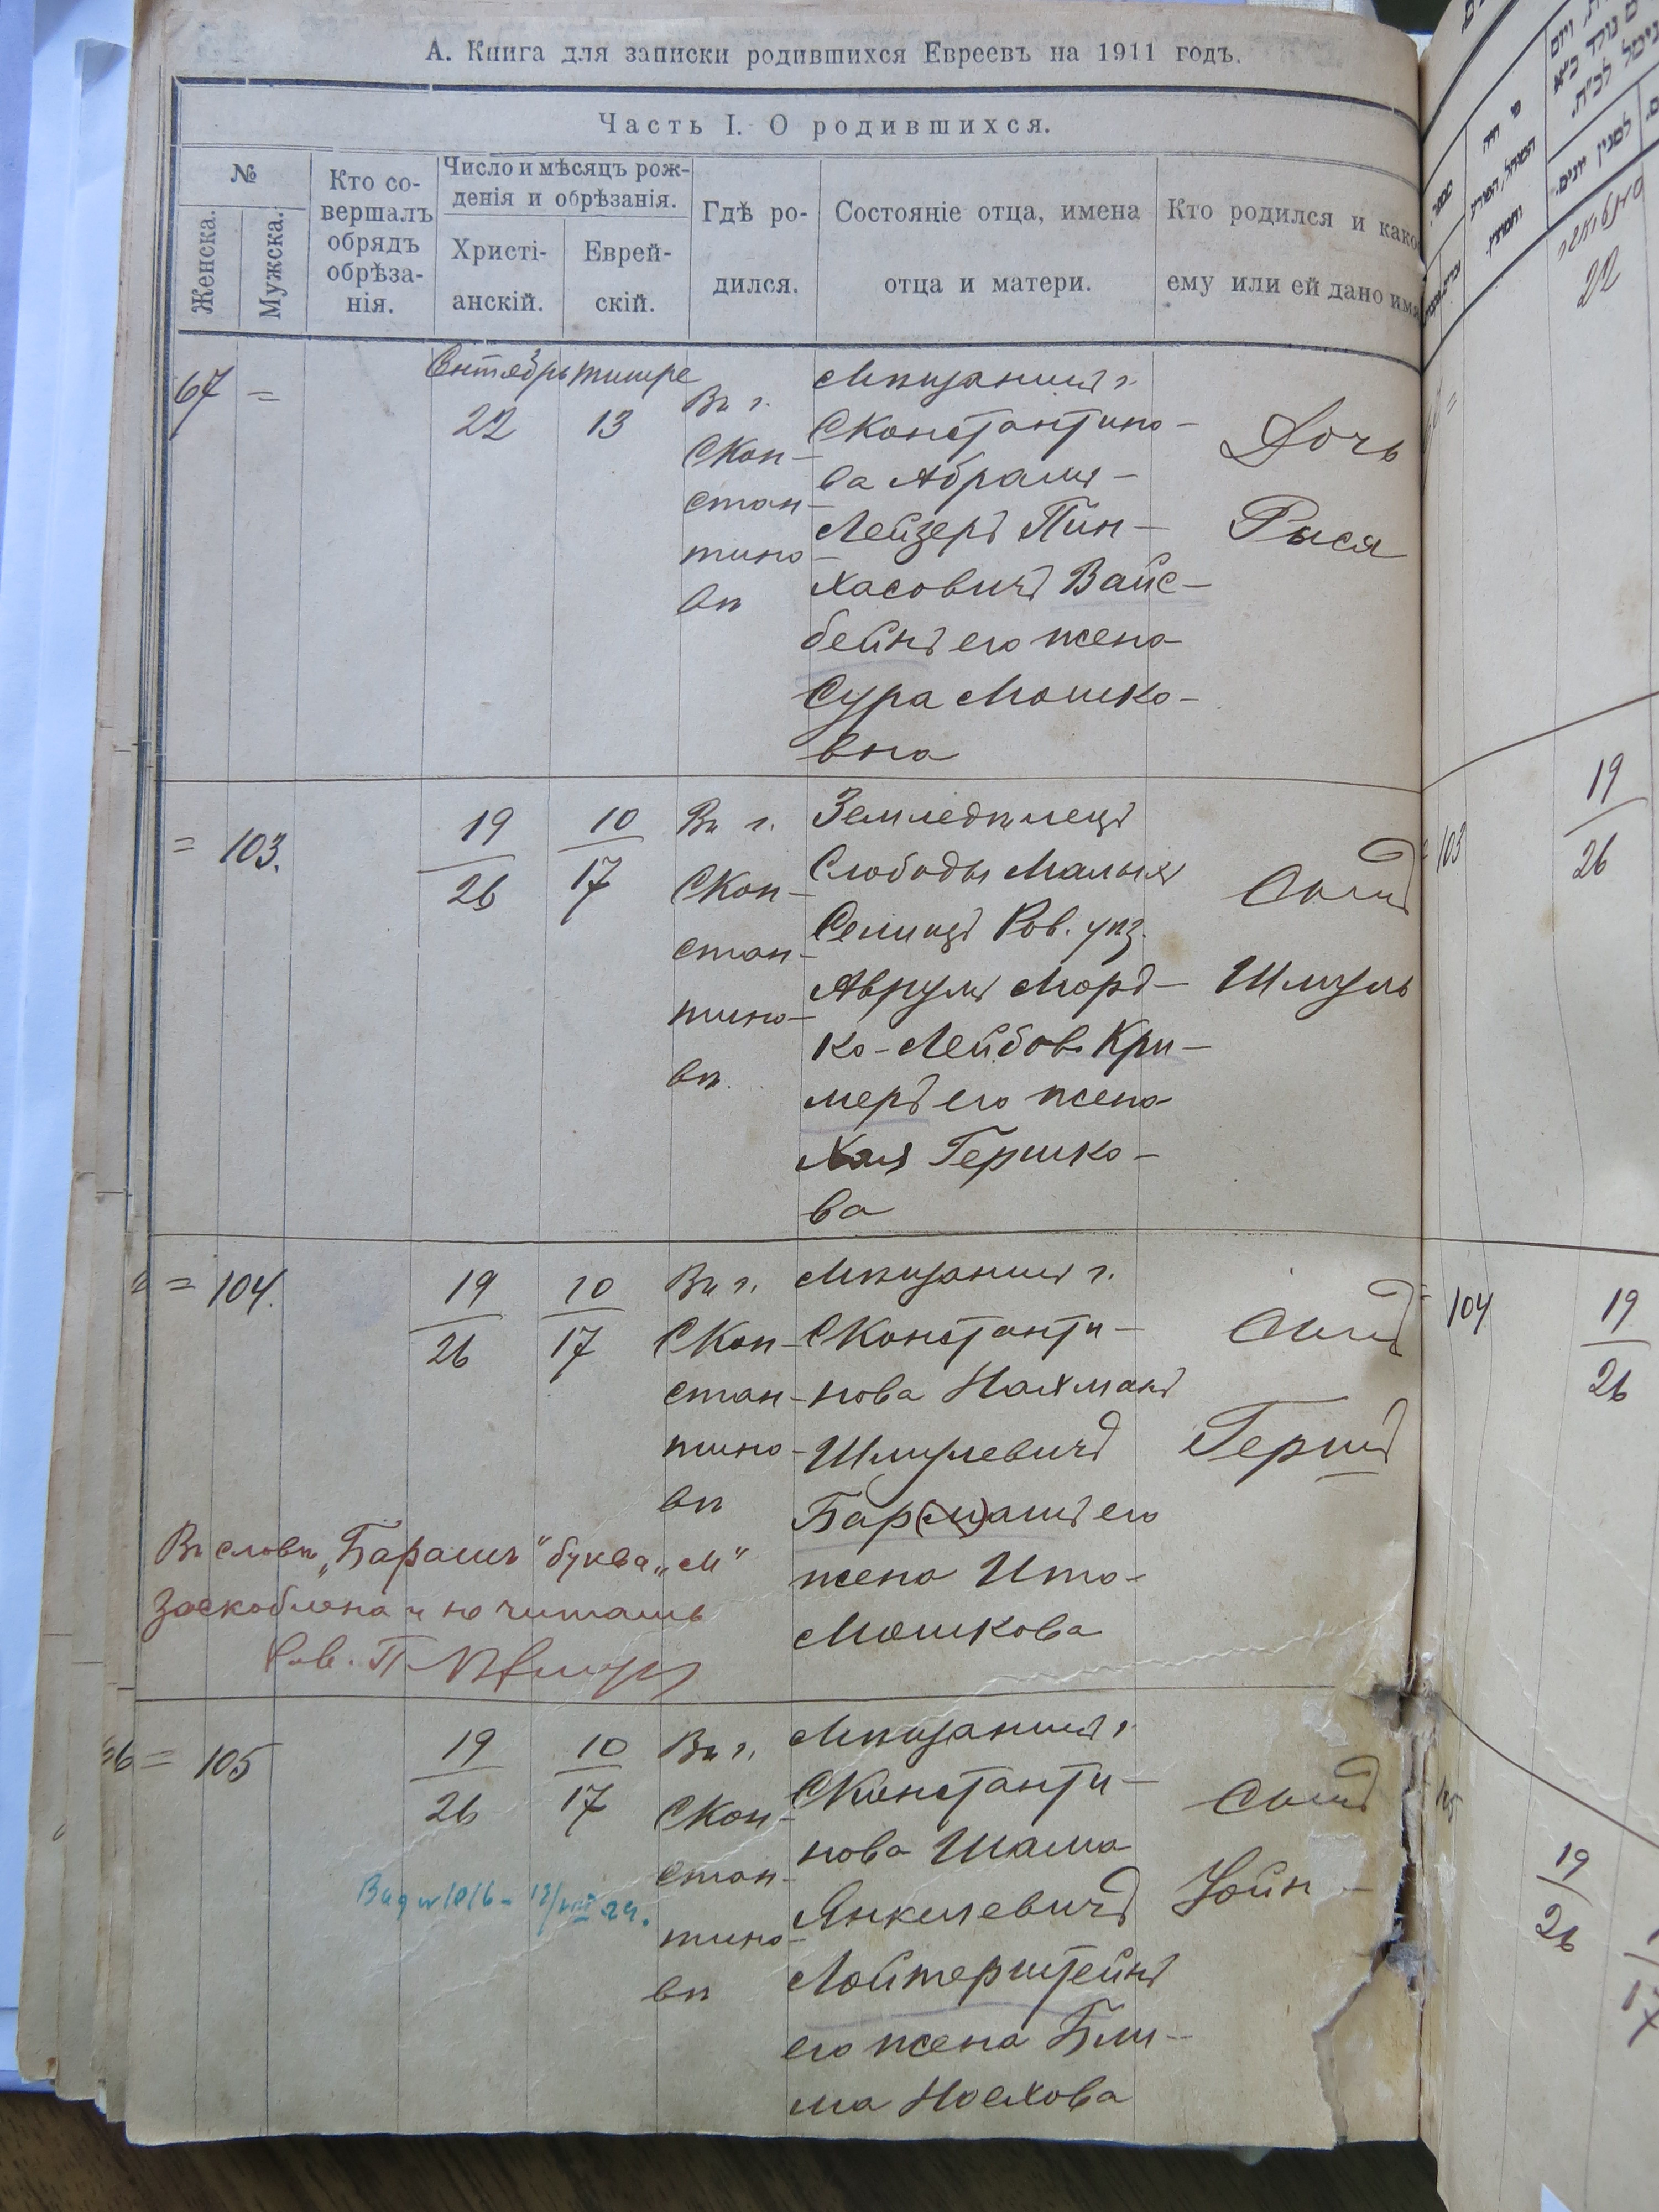 А. Книга для записки родившихся Евреевъ на 1911 годъ.
Часть I. О родившихся.
№
Женска.
Мужска.
Кто со-
вершалъ
обрядъ
обрѣза-
нія.
Число и мѣсяцъ рож-
денія и обрѣзанія.
Христі-
анскій.
Еврей-
скій.
Гдѣ ро-
дился.
Состояніе отца, имена
отца и матери.
Кто родился и како
ему или ей дано имя
67 =
Сентябрь
22
тишре
13
Въ г.
СКон-
стан-
тино-
вѣ
Мѣщанинъ г.
СКонстантино-
ва Абрамъ-
Лейзеръ Пин-
хасовичъ Вайс-
бейнъ его жена
Сура Мошко-
вна
Дочь
Рыся
= 103.
19
26
10
17
Въ г.
СКон-
стан-
тино-
вѣ
Земледѣлецъ
Слободы Малыхъ
Селищъ Ров. уѣз.
Аврумъ Морд-
ко-Лейбов. Кри-
меръ его жена
Хая Гершко-
ва
Сынъ
Шмуль
= 104.
19
26
10
17
Въ г.
СКон-
стан-
тино-
вѣ
Мѣщанинъ г.
СКонстанти-
нова Нахманъ
Шмулевичъ
Бар(м)ашъ его
жена Ита-
Мошкова
Сынъ
Гершъ
Въ словѣ „Барашъ" буква „м"
заскоблена и не читать
Рав. П.
= 105
19
26
10
17
Въ г.
СКон-
стан-
тино-
вѣ
Мѣщанинъ г.
СКонстанти-
нова Шама
Янкелевичъ
Лойтерштейнъ
его жена Бли-
ма Ноехова
Сынъ
Хойн-
103
19
26
104
19
26
105
19
26
22